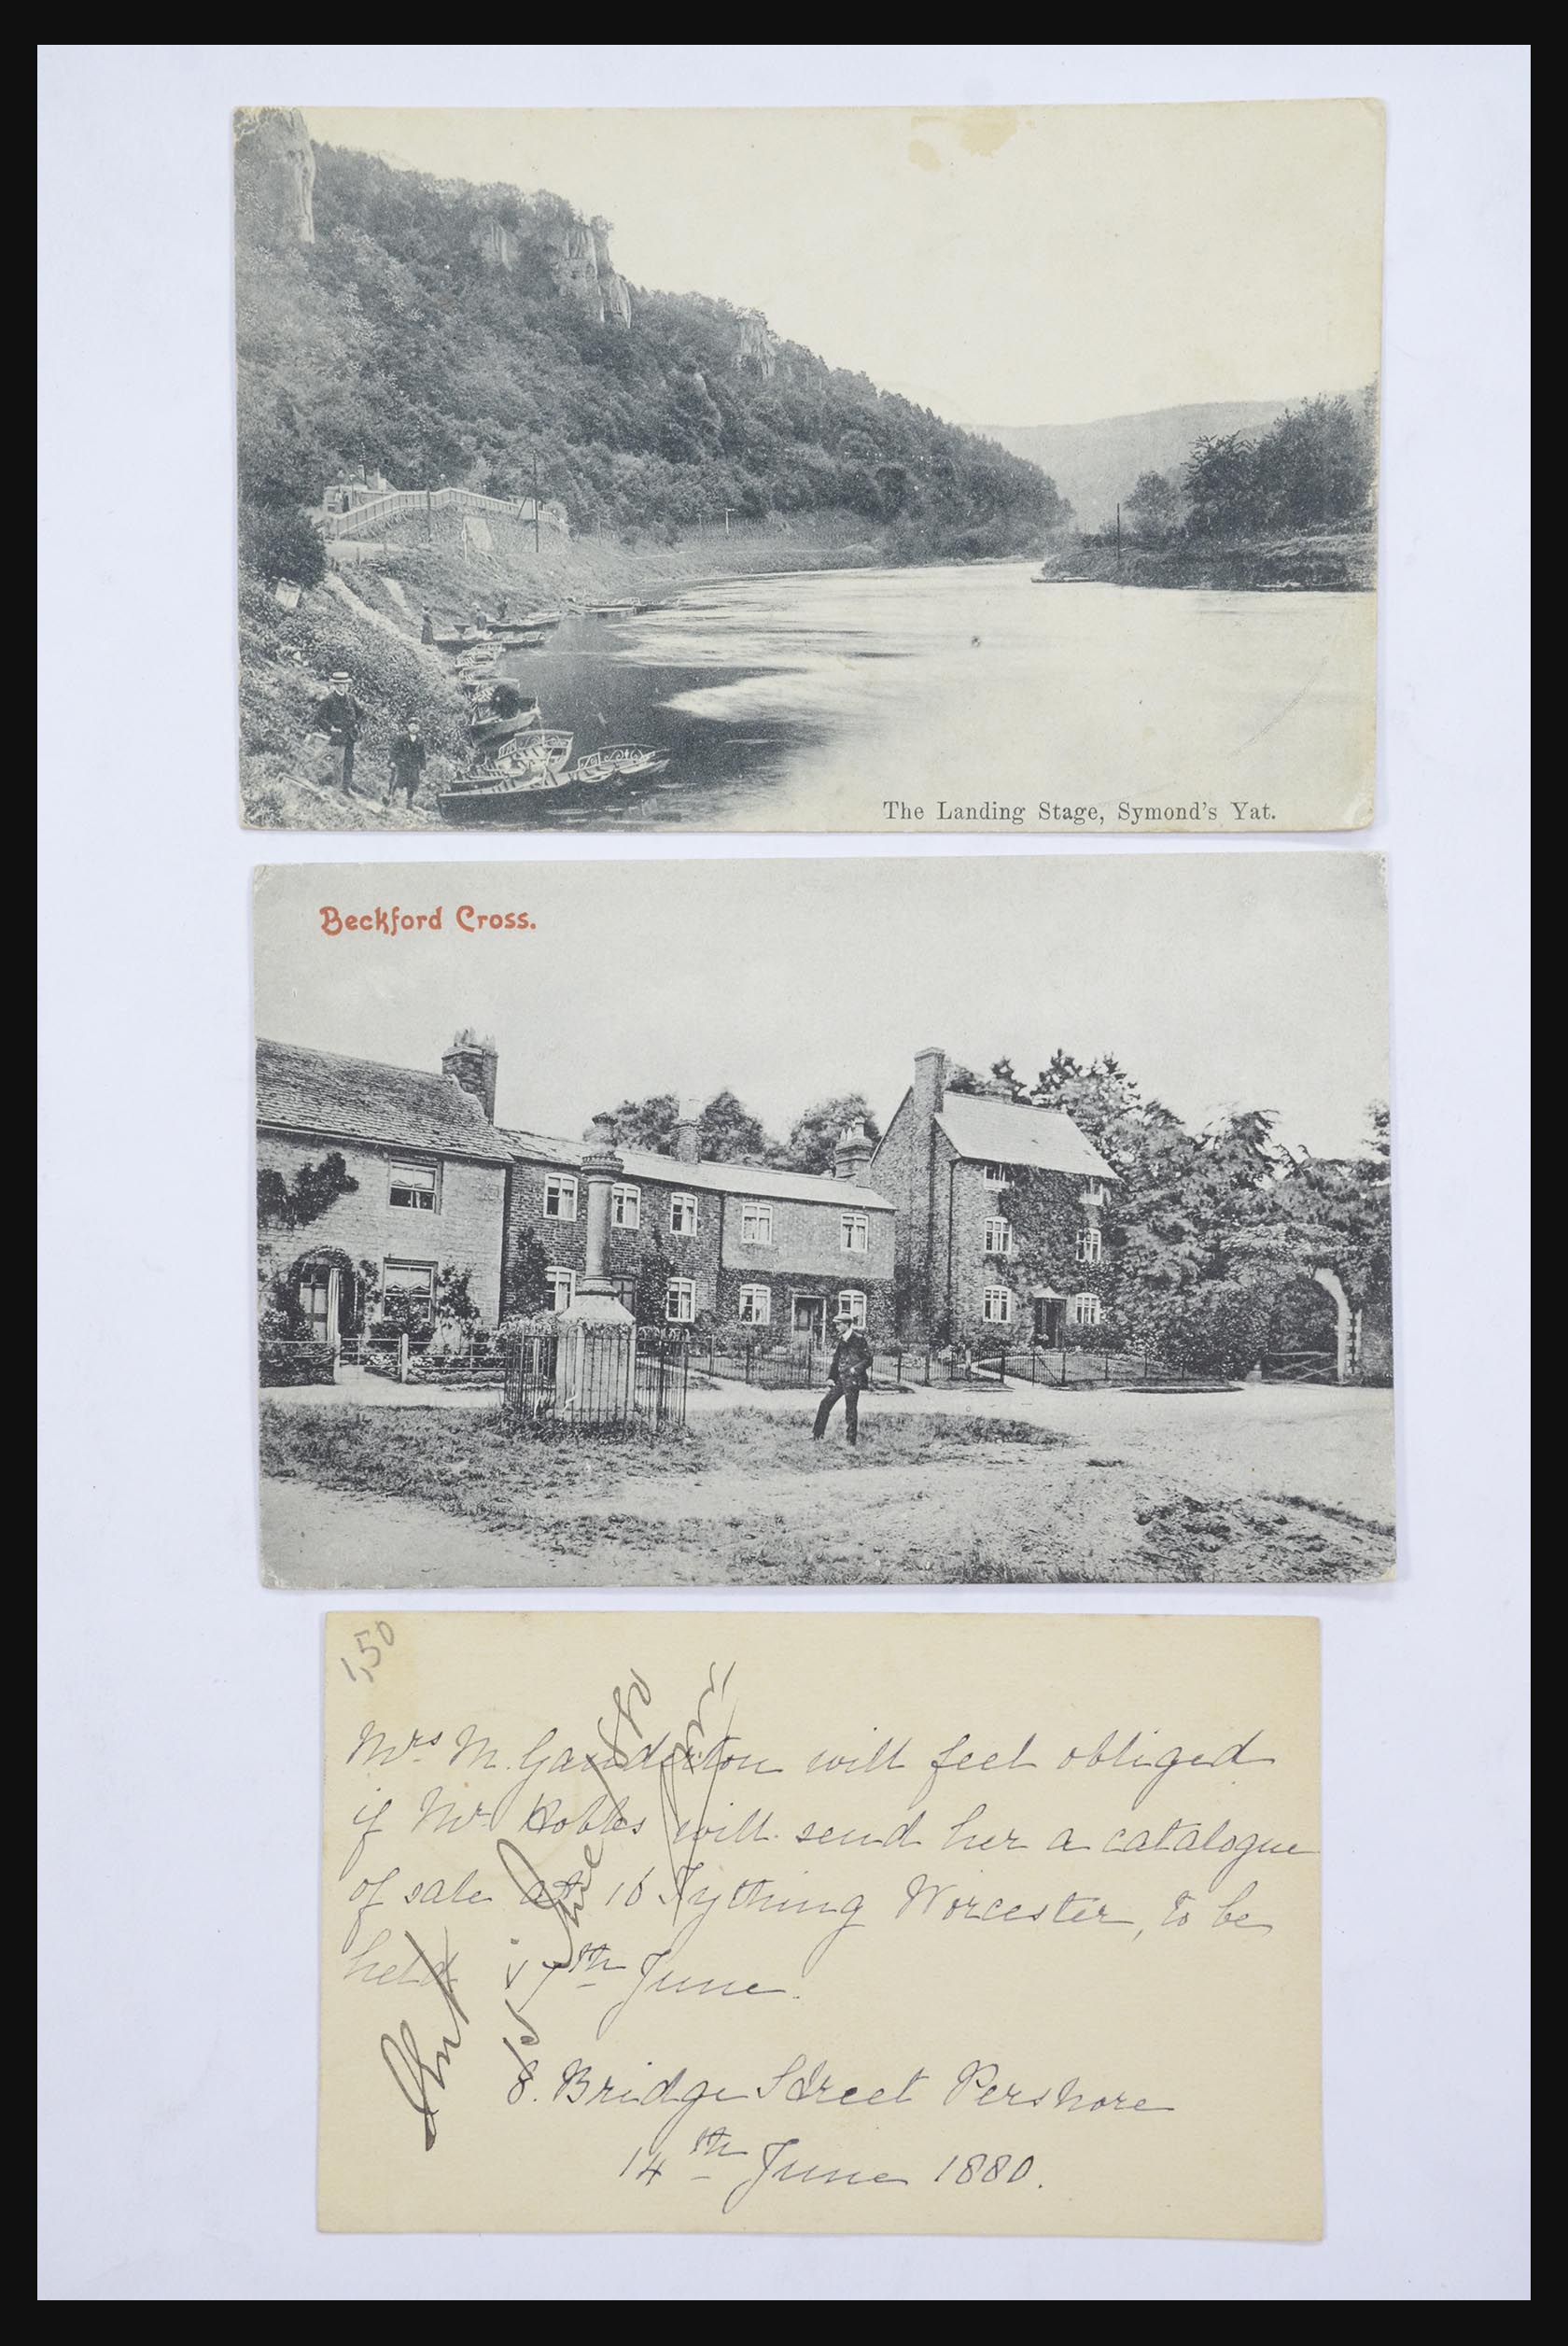 The Landing Stage, Symond's Yat.
Beckford Cross.
1,50
Mrs M. Ganderton will feel obliged
if Mr Hobbs will send her a catalogue
of sale at 16 Tything Worcester, to be
held 17th June.
8. Bridge Street Pershore
14th June 1880.
15 June 1880